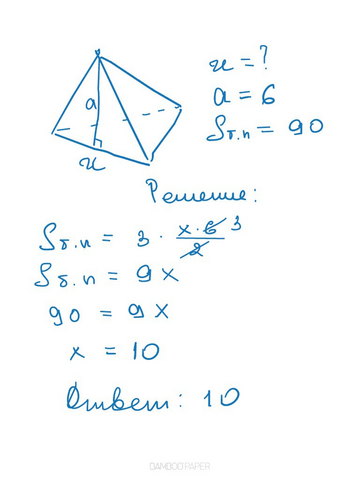 x = ?
a = 6
Sб.п = 90
a
x
Решение:
Sб.п = 3 · x·6/2 3
Sб.п = 9x
90 = 9x
x = 10
Ответ: 10
BAMBOO PAPER